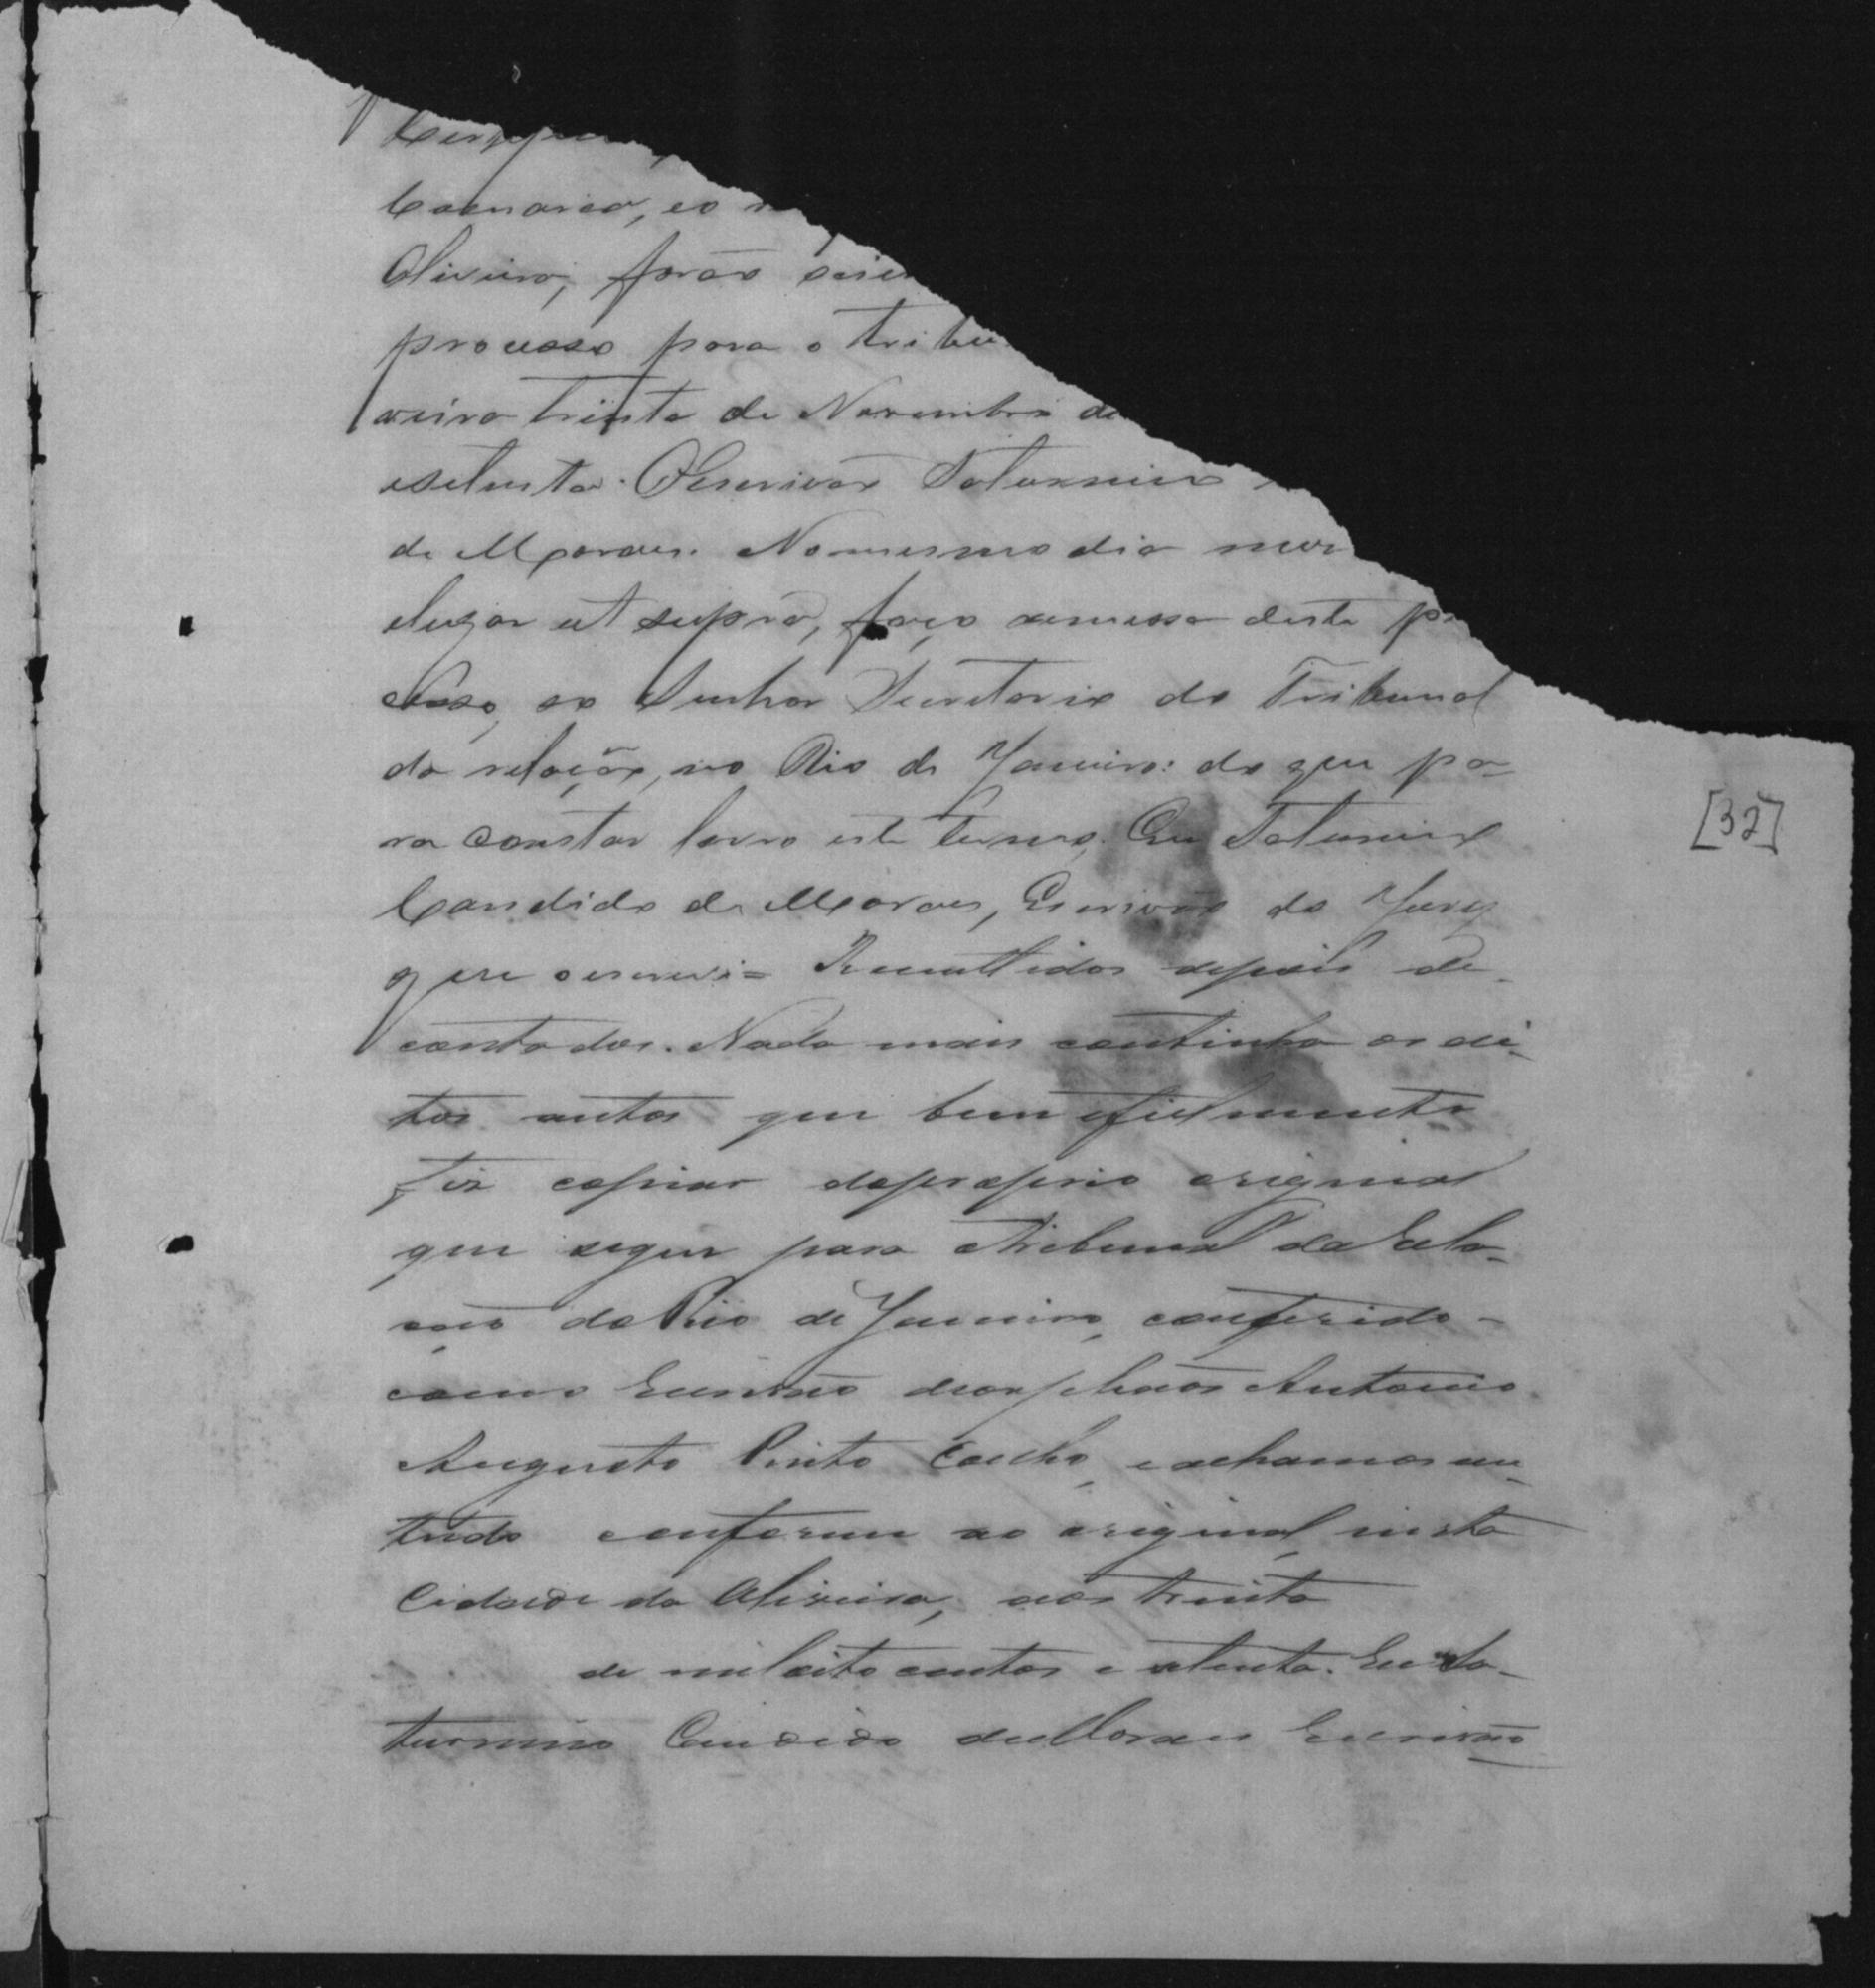 Comarca, eo
Oliveira, forão scien
processo para o tribu
veira trinta de Novembro de
esetenta. OEscrivão Saturnino
de Moraes. Nomesmo dia mez
elugar ut supra, faço remessa deste pr
cesso, ao Senhor Secretario do Tribunal
da relação, no Rio de Janeiro: do que pa-
ra constar lavro este termo. Eu Saturnino
Candido de Moraes, Escrivão do Jury
que oescrevi = Remettidos depois de
contados. Nada mais continha os di-
tos autos que bem efielmente
fiz copiar doproprio original
que segue para oTribunal daRela-
ção do Rio de Janeiro, conferido
como Escrivão deorphãos Antonio
Augusto Pinto Coelho, eachamos em
tudo conforme ao original, nesta
Cidade da Oliveira, aos trinta
de miloitocentos e setenta. Eu Sa-
turnino Candido deMoraes Escrivão
[32]